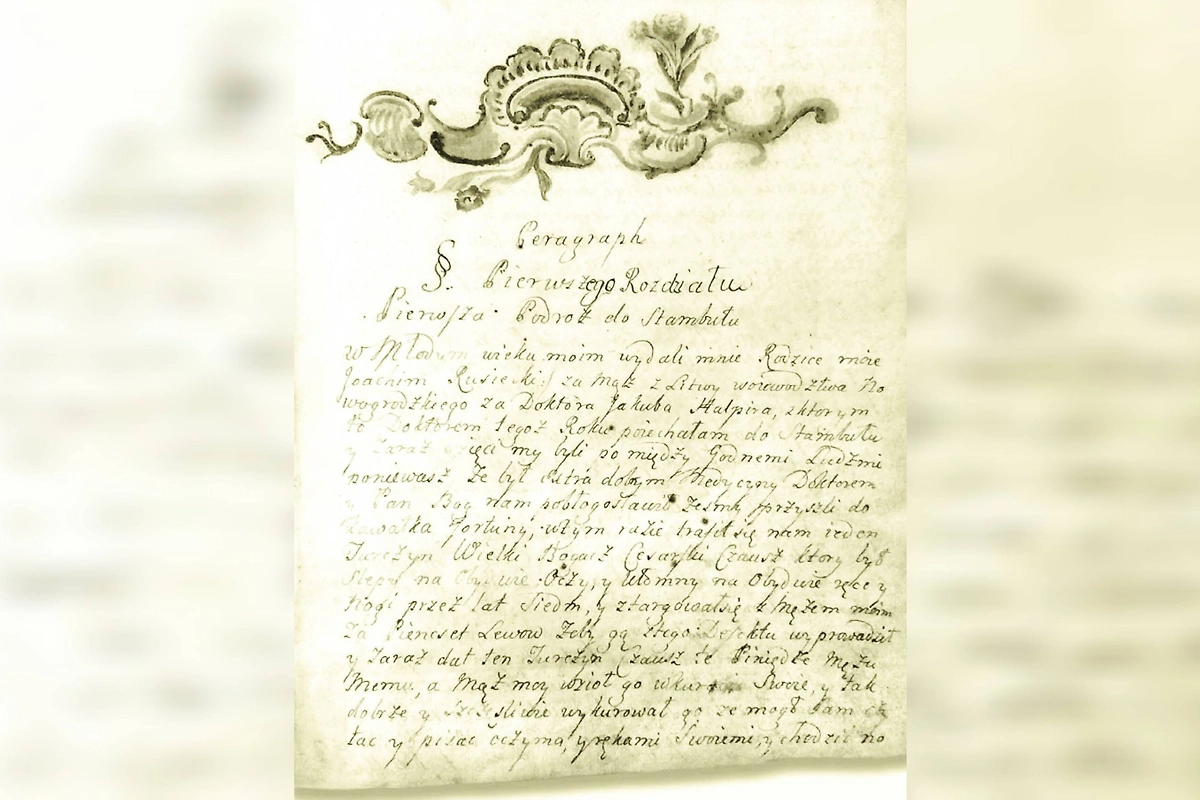 Peragraph
§. Pierwszego Rozdziału
Pierwsza Podroż do Stambułu
w Młodym wieku moim wydali mnie Rodzice moie
Joachim Rusiecki:/ za Mąż z Litwy woiewodztwa No
wogrodzkiego za Doktora Jakuba Halpira, zktorym
to Doktorem tegoż Roku poiechałam do Stambułu
y Zaraż wzięci my byli po między Godnemi Ludźmi
poniewasz że był extra dobrym Medycyny Doktorem
y Pan Bog nam pobłogosławił żeśmy przyszli do
Kawałka Fortuny, wtym razie trafił się nam ieden
Turczyn Wielki Bogacz Cesarski Czausz ktory był
Slepy na Obydwie Oczy, y Ułomny na Obydwie ręce y
Nogi przez lat Siedm, y ztargował się z Mężem moim
Za Piencset Lewow Zeby go ztego Defektu wyprowadził
y Zaraż dał ten Turczyn Czausz te Piniędze Mężu
Memu, a Mąż moy wzioł go wkuracją Swoie, y tak
dobrze y Szczęsliwie wykurował go ze mogł sam czy
tac y pisac oczyma, y rękami Swoiemi, y chodzić no